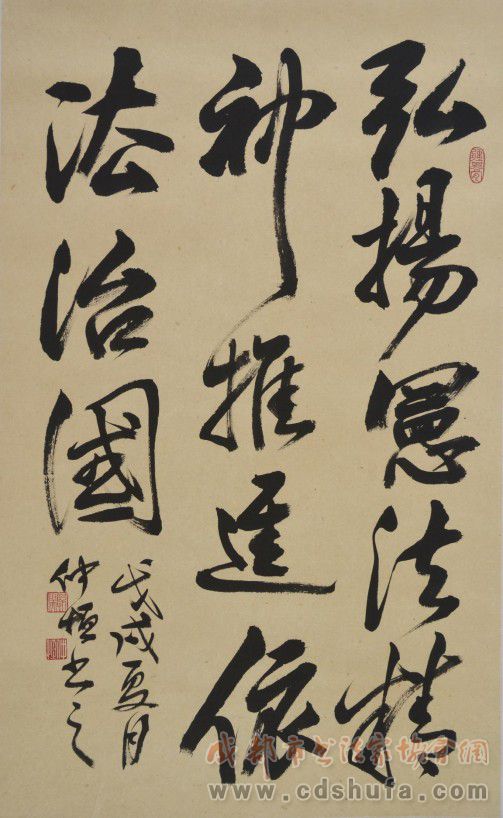 弘揚憲法精
神推進依
法治國
戊戌夏月
仲恒书之
成都市书法家协会网
www.cdshufa.com